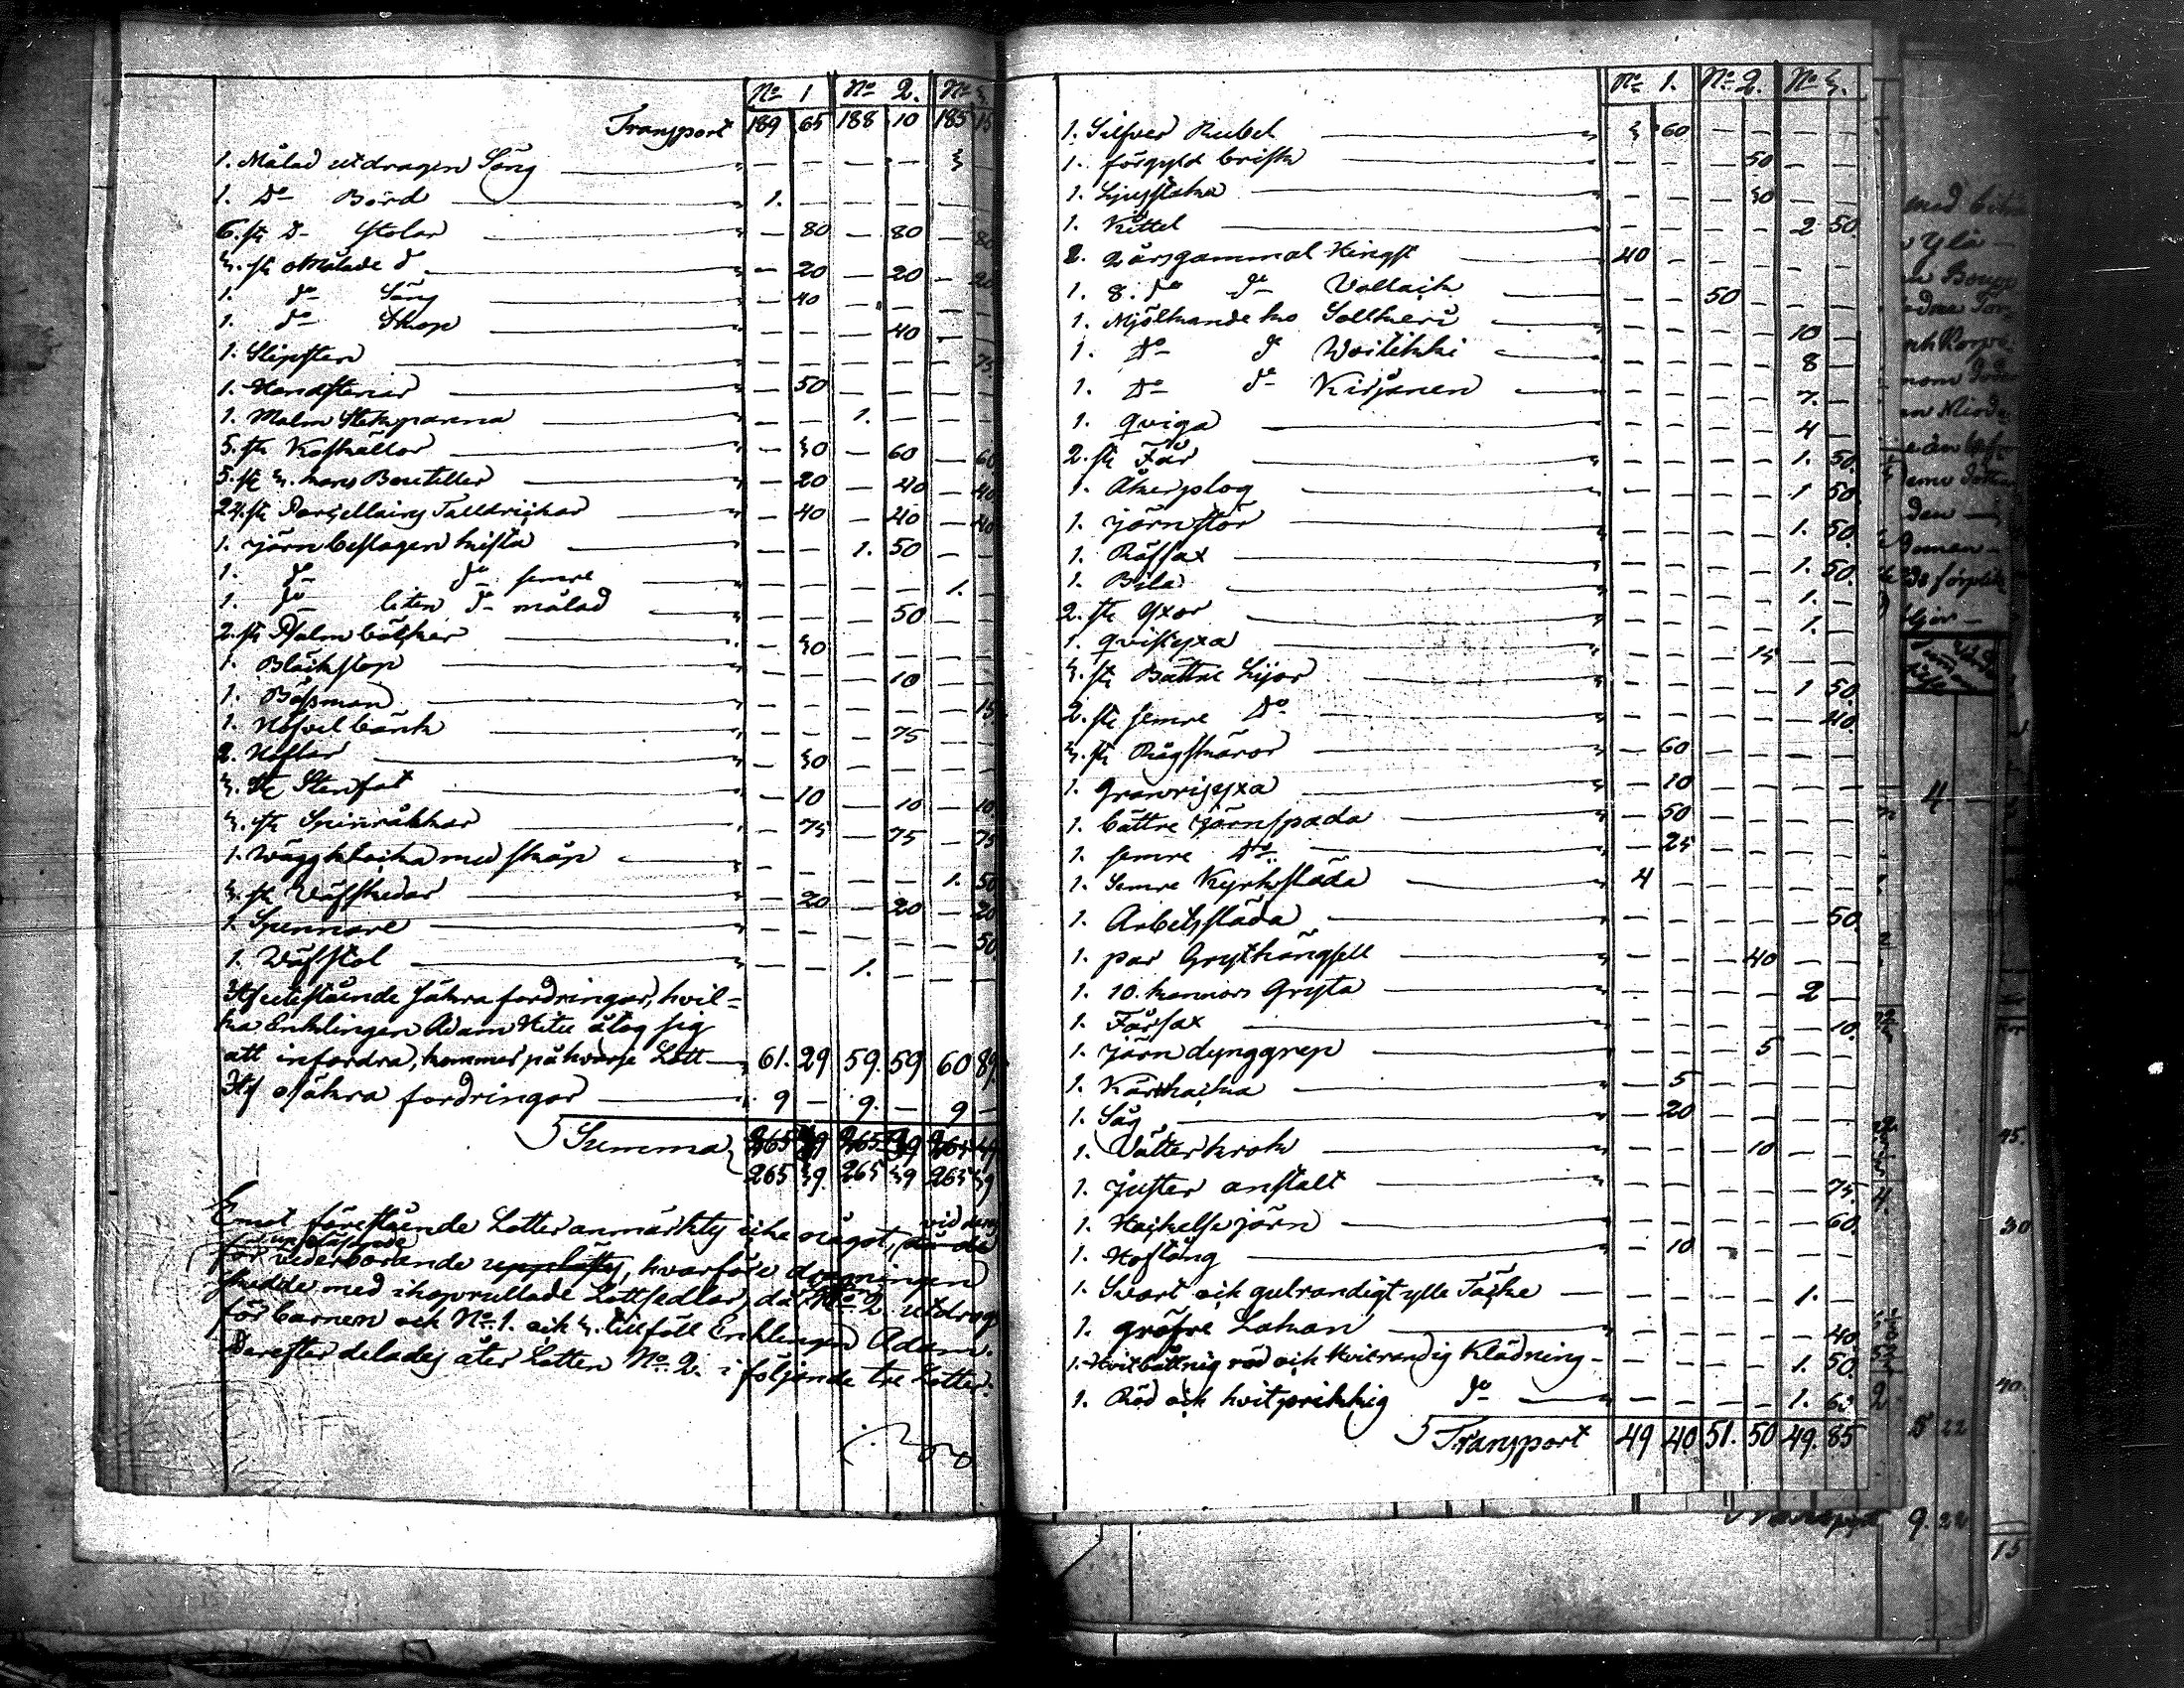 No 1 No 2. No 3.
Transport 189 65 188 10 185 15
1. Målad utdragen Säng — — — — 3 —
1. Do Bord 1. — — — — —
6. st. Do Stolar — 80 — 80 — 80
3. st. omålade do — 20 — 20 — 20
1. do Säng — 40 — — — —
1. do Skåp — — — 40 — —
1. Slipsten — — — — — 75
1. Handstenar — 50 — — — —
1. Malm Stekpanna — — 1. — — —
5. st. Koskällor — 30 — 60 — 60
5. st. 3. kans Bouteiller — 20 — 40 — 40
24. st. Porcellains Talldrickar — 40 — 40 — 40
1. jörnbeslagen kista — — 1. 50 — —
1. do do semre — — — — 1. —
1. do liten do målad — — — 50 — —
2. st. Psalmböcker — 30 — — — —
1. Bläckstop — — — 10 — —
1. Bössman — — — — — 15
1. Höfvelbänk — — — 75 — —
2. Höflar — 30 — — — —
3. st. Stenfat — 10 — 10 — 10
3. st. Spinråkkar — 75 — 75 — 75
1. Väggklocka med skåp — — — — 1. 50
3. st. Väfskedar — 20 — 20 — 20
1. Spennare — — — — — 50
1. Väfstol — — 1. — — —
Af utestående säkra fordringar, hvil=
ka Enklingen Adam åtog sig
att infordra, kommer på hvarje Lott 61. 29 59. 59 60 89
Af osäkra fordringar 9 — 9. — 9 —
Summa
265 39 265 39 265 39
Emot förestående Lotter anmärktes icke något, vid deras
uppläsande
för vederbörande, hvarföre dragningen
skedde med ihoprullade Lottsedlar, då No 2. utdrogs
för barnen och No 1. och 3. tillföll Enklingen Adam.
Derefter delades åter Lotten No 2. i följande tre Lotter.
No 1. No 2. No 3.
1. Silfver Rubel 3 60 — — — —
1. förgyld brisk — — — 50 — —
1. Ljusstaka — — — 30 — —
1. Kittel — — — — 2 50.
1. 2 årsgammal Hingst 40 — — — — —
1. 8. do do Vallack — — 50 — — —
1. Mjölkande ko Sollkeri — — — — 10 —
1. Do do Woilikki — — — — 8 —
1. Do do Kirjonen — — — — 7. —
1. qviga — — — — 4 —
2. st. Får — — — — 1. 50.
1. Åkerplog — — — — 1 50
1. jörnstör — — — — 1. 50.
1. Räfsax — — — — 1. 50.
1. Bila — — — — 1. —
2. st. Yxor — — — — 1. —
1. qvistyxa — — — 15 — —
3. st. Bättre Lijor — — — — 1 50.
2. st. semre Do — — — — — 40.
3. st. Rågskäror — 60 — — — —
1. 10 — — — —
1. bättre jörnspada — 50 — — — —
1. semre Do — 25 — — — —
1. Semre Kyrksläda 4 — — — — —
1. Arbetssläda — — — — — 50
1. par Grythängsell — — — 40 — —
1. 10. kannors Gryta — — — — 2 —
1. Fårsax — — — — — 10.
1. jörn dynggrep — — — 5 — —
1. 5 — — — —
1. Såg — 20 — — — —
1. Vätterkrok — — — 10 — —
1. juster anstalt — — — — — 75.
1. Hackelsejörn — — — — — 60.
1. Hoftång — 10 — — — —
1. Svart och gulrandigt ylle Täcke — — — — 1. —
1. gröfre Lakan — — — — — 40.
1. Hvitbåttnig röd och Hvitrandig Klädning — — — — 1. 50.
1. Röd och hvitprikkig do — — — — 1. 60.
Transport 49 40 51. 50 49. 85